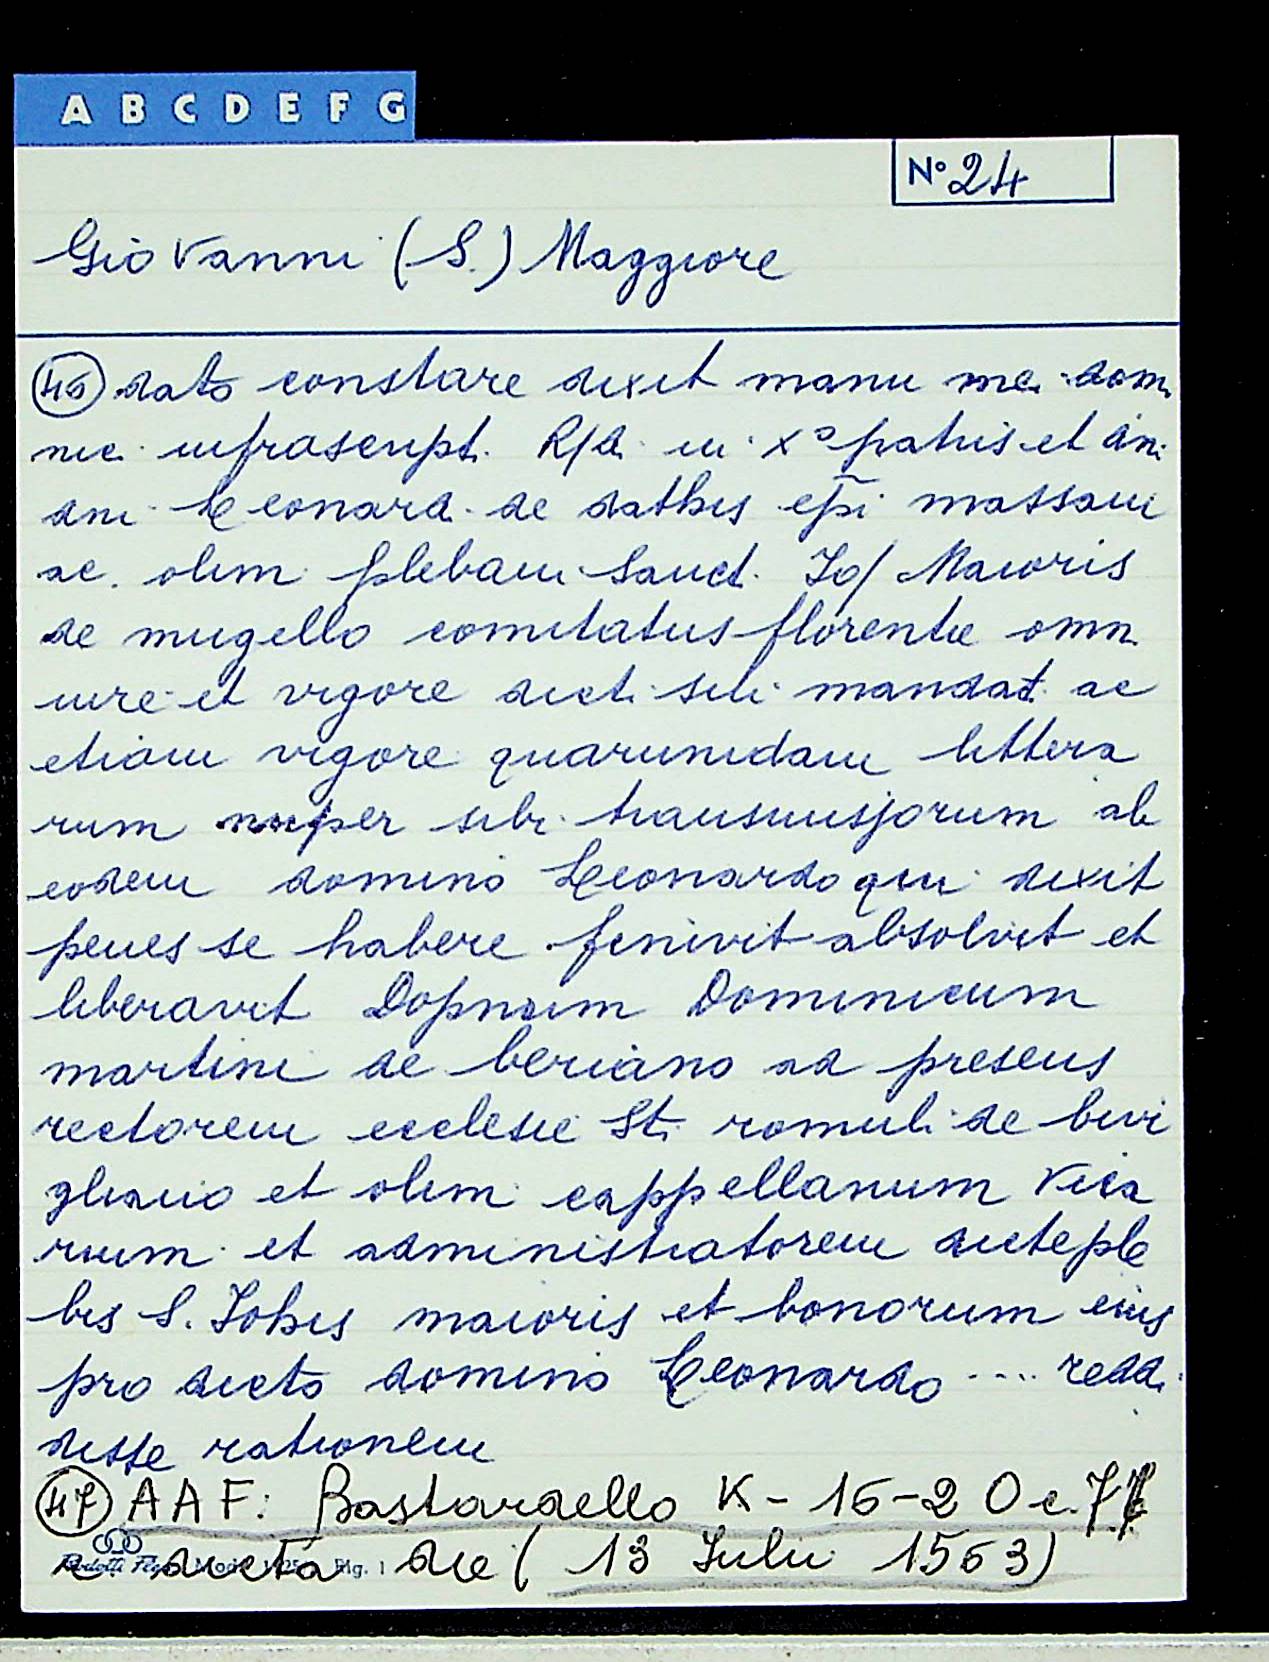 A B C D E F G
N° 24
Giovanni (S.) Maggiore
46 dato constare dixit manu mei dom
nici infrascript. R/di in x° patris et dni
dni Leonard. de dathis epi massani
ac. olim plebani Sanct. Jo/ Maioris
de mugello comitatus florentie omn
iure et vigore dicti sili mandat. ac
etiam vigore quarumdam littera
rum nuper sibi transmissorum ab
eodem domino Leonardo qui dixit
penes se habere finivit absolvit et
liberavit Dopnum Dominicum
martini de beriano ad presens
rectorem ecclesie Sti romuli de bivi
gliano et olim cappellanum vica
rium et administratorem dicte ple
bis S. Johis maioris et bonorum eius
pro dicto domino Leonardo .... reddi
disse rationem
47 AAF: Bastardello K - 16 - 20 c.
dicta die ( 13 Iulii 1563)